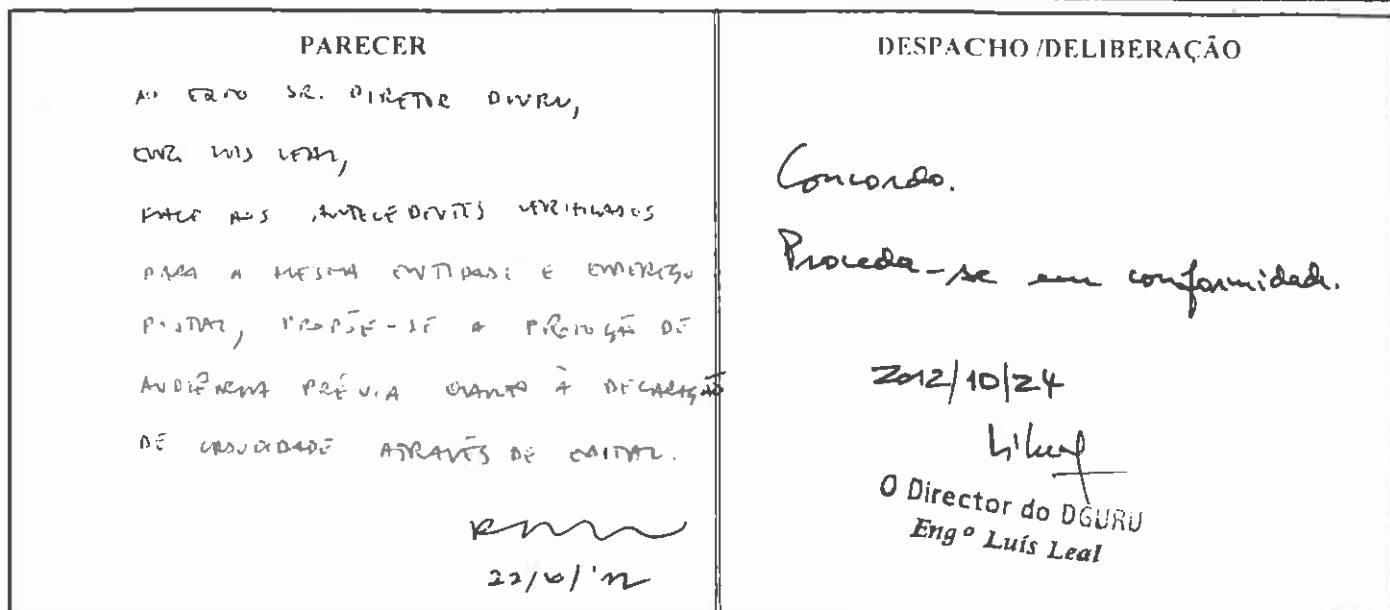 PARECER
AO EXMO SR. DIRETOR
ENG. LUIS LEAL,
FACE AOS ANTECEDENTES VERIFICADOS
PARA A MESMA ENTIDADE E ENDEREÇO
POSTAL, PROPÕE-SE A PROMOÇÃO DE
AUDIÊNCIA PRÉVIA QUANTO À DECLARAÇÃO
DE CADUCIDADE ATRAVÉS DE EDITAL.
22/10/'12
DESPACHO/DELIBERAÇÃO
Concordo.
Proceda-se em conformidade.
2012/10/24
O Director do DGURU
Engº Luís Leal